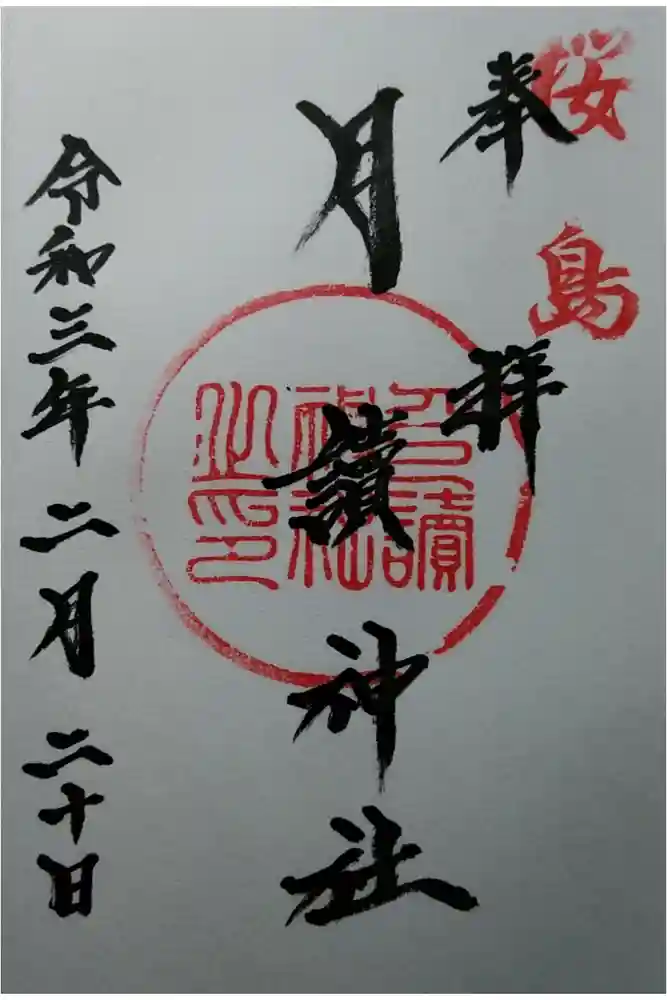 桜島
奉拝
月讀神社
月讀
神社
之印
令和三年二月二十日